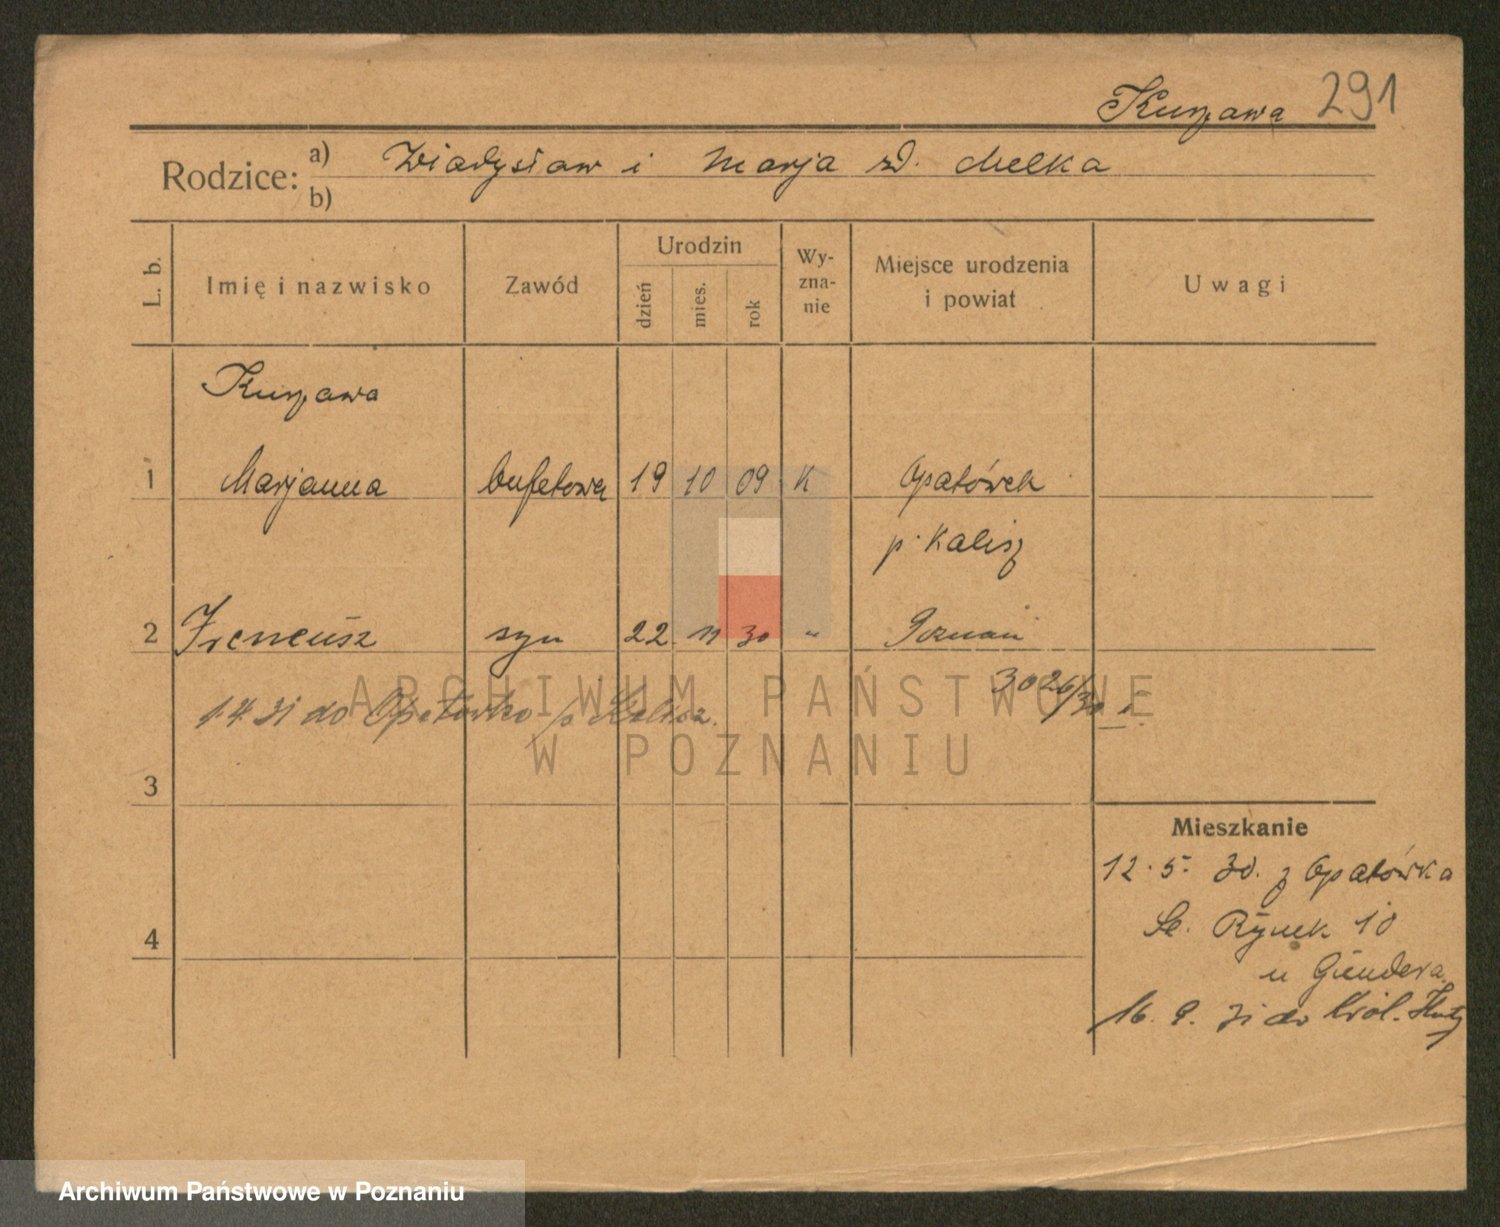 Kurzawa 291
Rodzice: a) Władysław i Marja zd. Melka
b)
L. b. Imię i nazwisko Zawód Urodzin dzień mies. rok Wy-zna-nie Miejsce urodzenia i powiat Uwagi
Kurzawa
1 Marjanna bufetowa 19 10 09 K Opatówek
p. Kalisz
2 Ireneusz syn 22 11 30 " Poznań
3026/30
14 31 do Opatówko p Kalisz.
ARCHIWUM PAŃSTWOWE
W POZNANIU
3
Mieszkanie
12. 5. 30. z Opatówka
4
St. Rynek 10
u Giendera
16. 9. 31 do Król. Huty
Archiwum Państwowe w Poznaniu